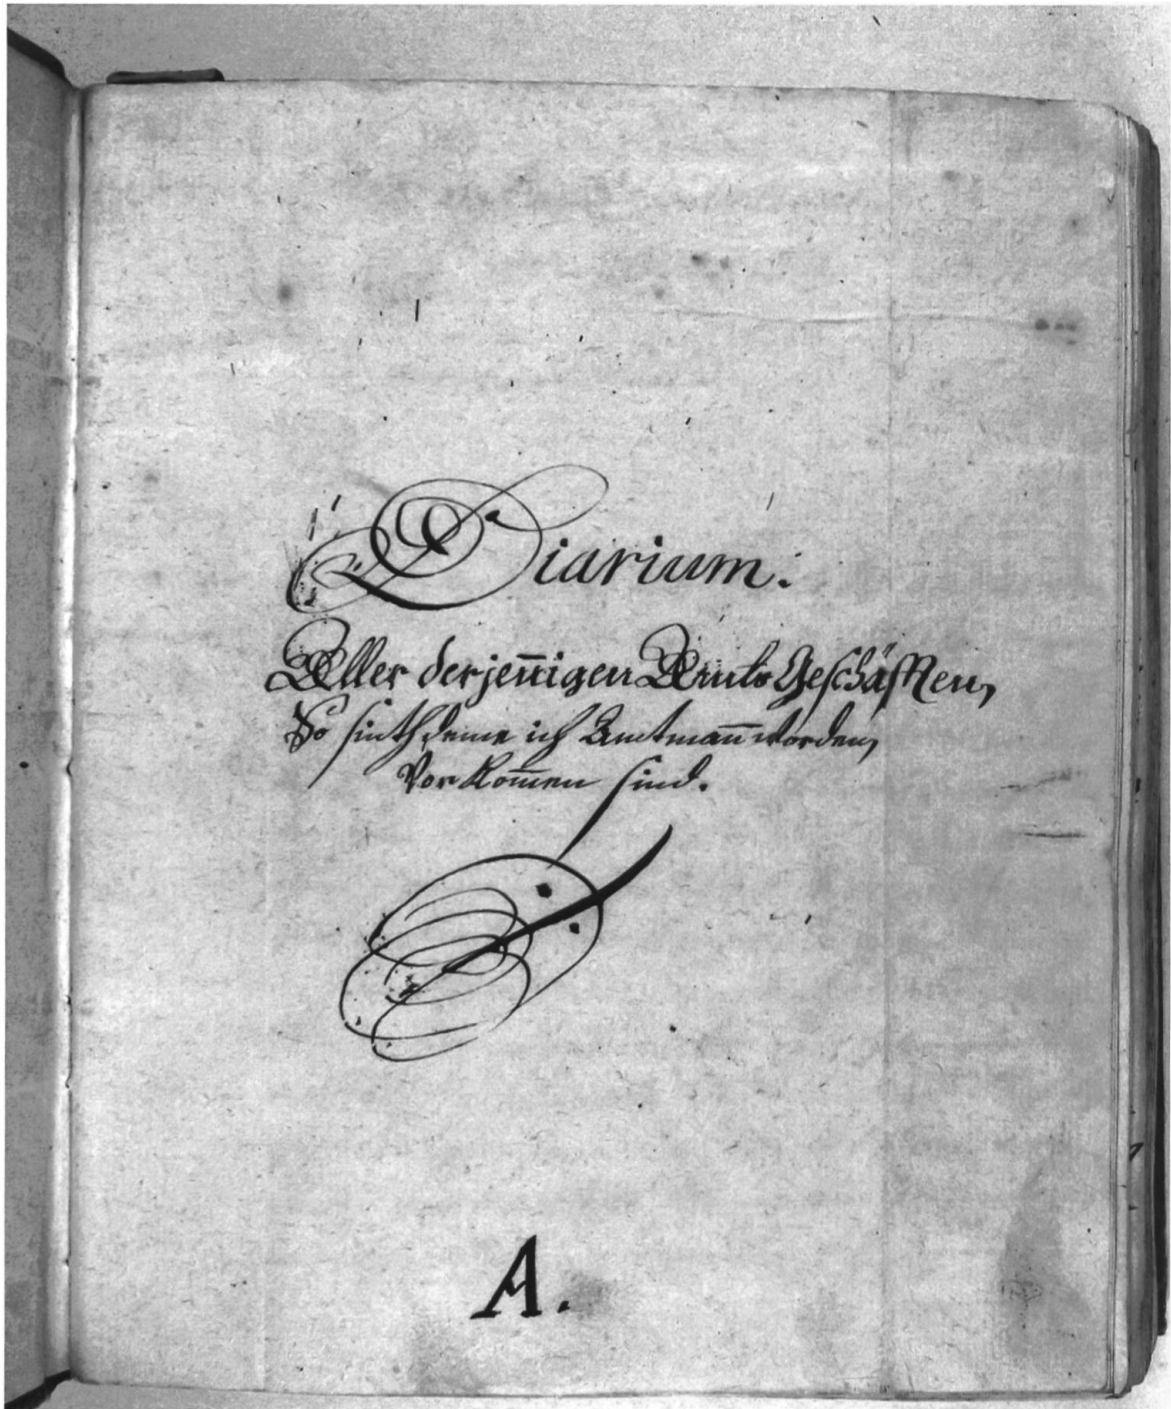 Diarium:
Aller derjen̄igen Ambts Geschäfften,
So sinthdeme ich Amtman̄ worden,
Vorkom̄en sind.
A.